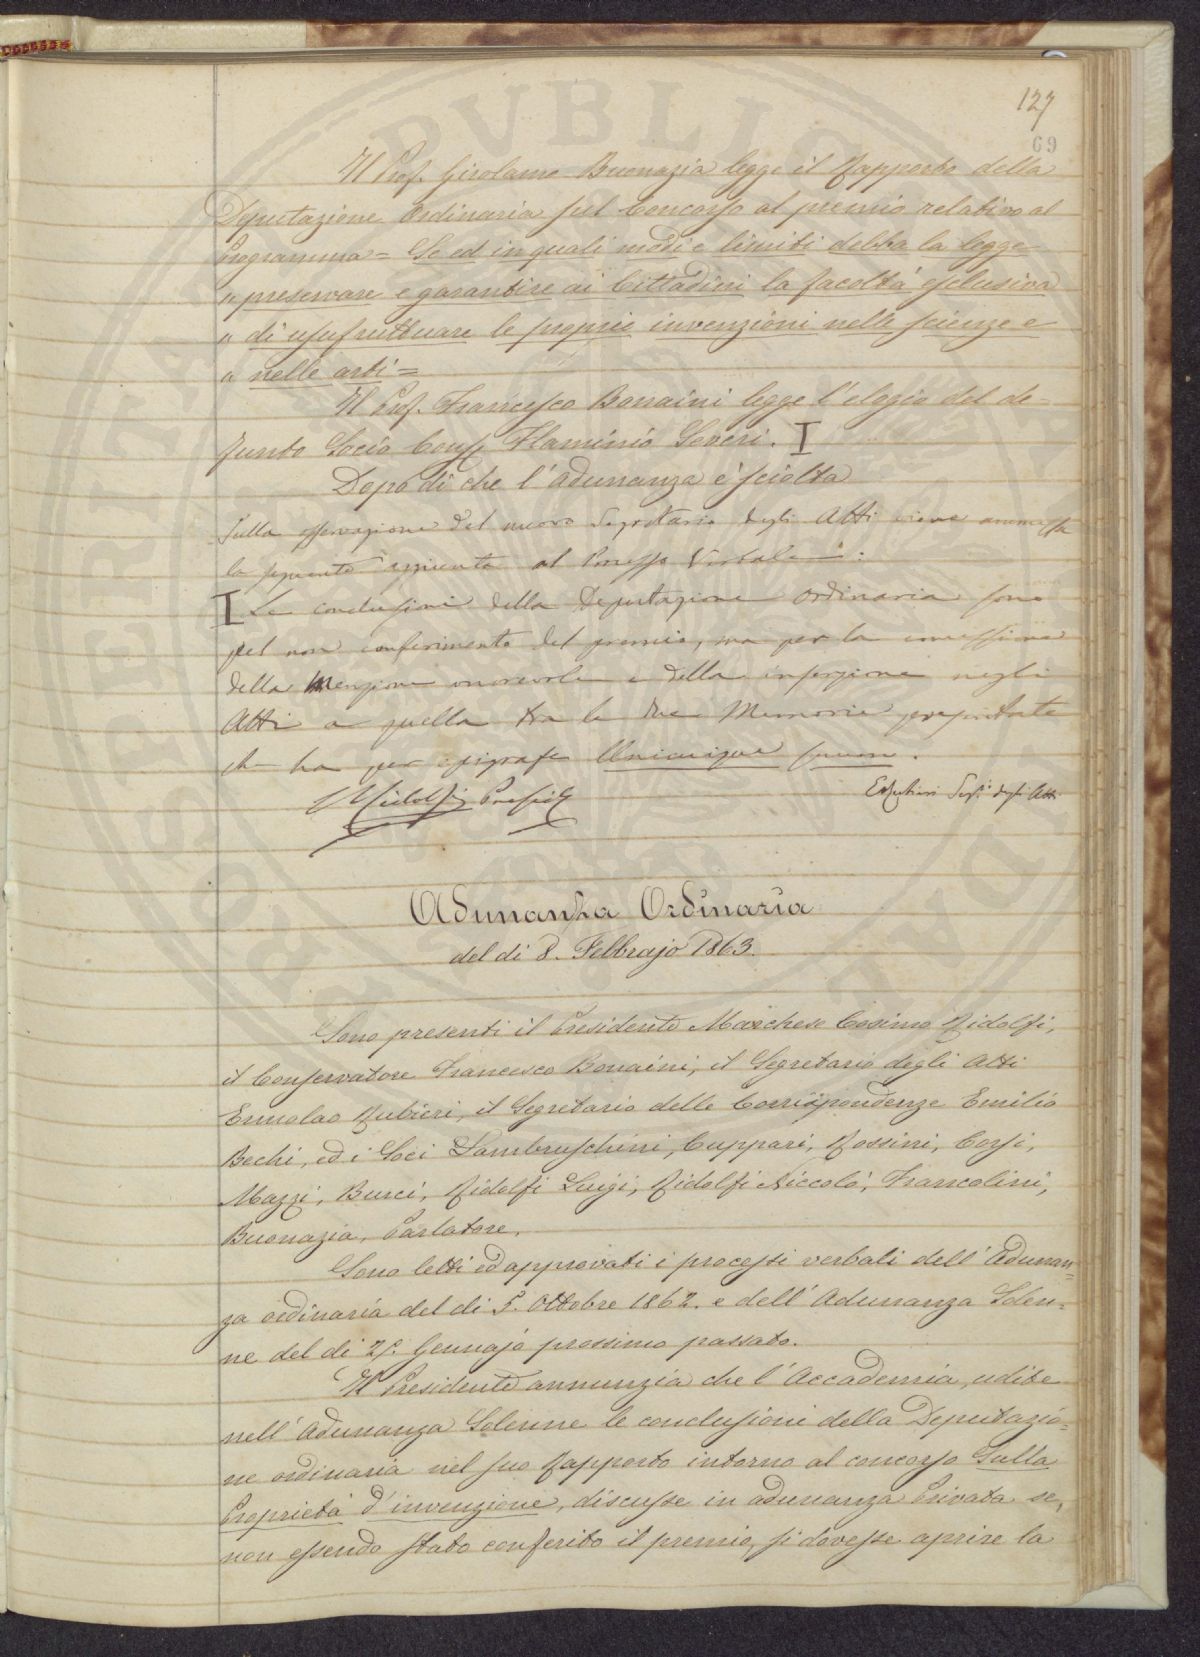 127
69
Il Prof. Girolamo Buonazia legge il Rapporto della
Deputazione Ordinaria sul Concorso al premio relativo al
Programma = Se ed in quali modi e limiti debba la legge
" preservare e garantire ai Cittadini la facoltà esclusiva
" di usufruttuare le proprie invenzioni nelle scienze e
" nelle arti =
Il Prof. Francesco Bonaini legge l'elogio del de-
funto Socio Conss. Flaminio Severi. I
Dopo di che l'adunanza è sciolta
Sulla osservazione del nuovo Segretario degli Atti viene ammessa
la seguente aggiunta al Processo Verbale:
I Le conclusioni della Deputazione Ordinaria sono
pel non conferimento del premio, ma per la concessione
della Menzione onorevole e della inserzione negli
Atti a quella tra le due Memorie presentate
che ha per epigrafe Unicuique suum.
C Ridolfi Presid.
E Rubieri Seg. degli Atti
Adunanza Ordinaria
del dì 8. Febbrajo 1863.
Sono presenti il Presidente Marchese Cosimo Ridolfi,
il Conservatore Francesco Bonaini, il Segretario degli Atti
Ermolao Rubieri, il Segretario delle Corrispondenze Emilio
Bechi, ed i Soci Lambruschini, Cuppari, Rossini, Corsi,
Mazzi, Burci, Ridolfi Luigi, Ridolfi Niccolò, Francolini,
Buonazia, Parlatore.
Sono letti ed approvati i processi verbali dell'Adunan=
za ordinaria del dì 5. Ottobre 1862. e dell'Adunanza Solen=
ne del dì Gennajo prossimo passato.
Il Presidente annunzia che l'Accademia, udite
nell'Adunanza Solenne le conclusioni della Deputazio=
ne ordinaria nel suo Rapporto intorno al concorso Sulla
Proprietà d'invenzione, discusse in adunanza Privata se,
non essendo stato conferito il premio, si dovesse aprire la